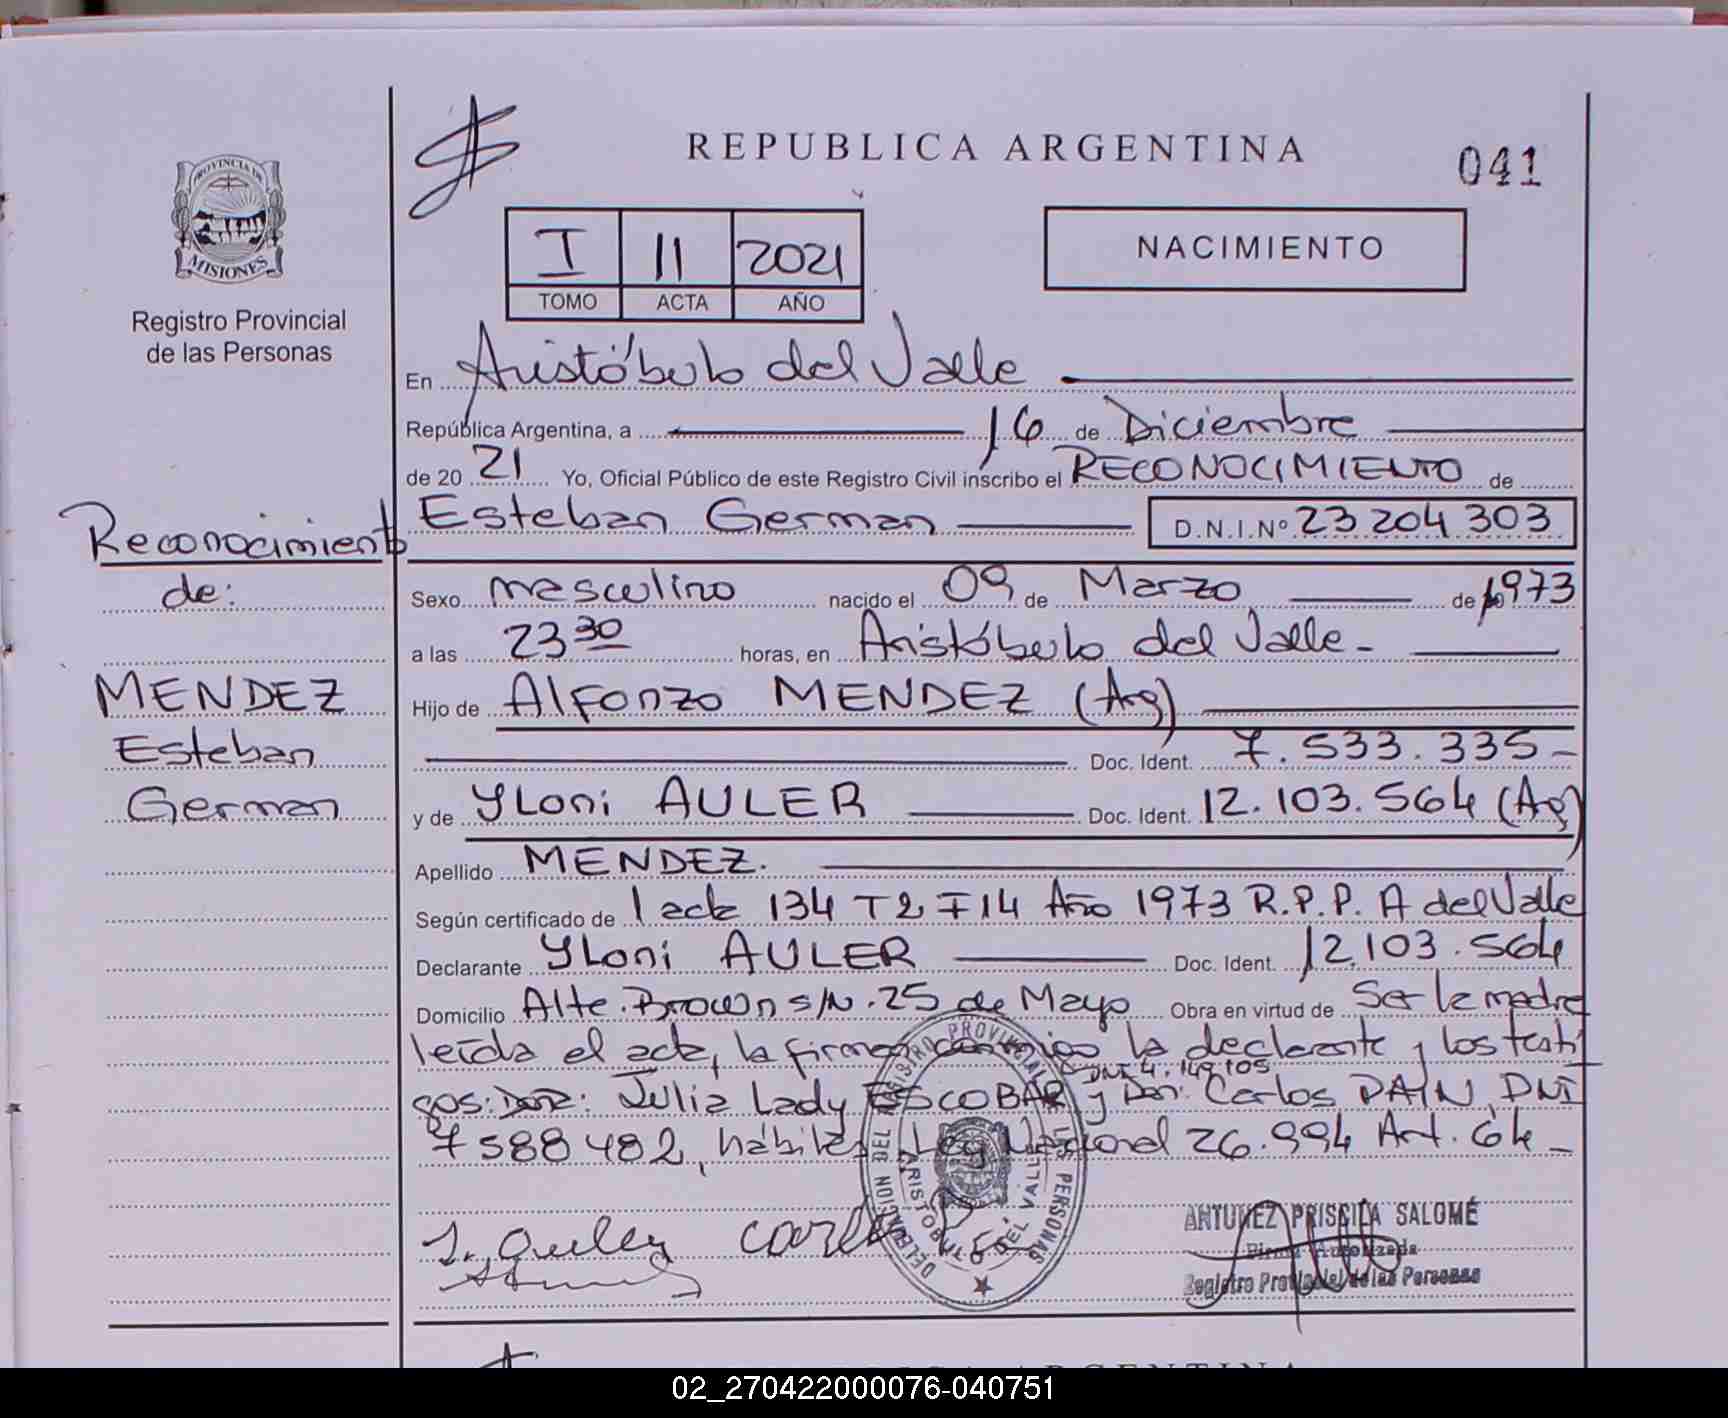 REPUBLICA ARGENTINA
041
PROVINCIA DE
MISIONES
Registro Provincial
de las Personas
I 11 2021
TOMO ACTA AÑO
NACIMIENTO
En Aristóbulo del Valle
República Argentina, a 16 de Diciembre
de 20 21 Yo, Oficial Público de este Registro Civil inscribo el RECONOCIMIENTO de
Esteban German D.N.I.Nº 23 204 303
Reconocimiento
de:
MENDEZ
Esteban
German
Sexo masculino nacido el 09 de Marzo de 1973
a las 23 30 horas, en Aristóbulo del Valle -
Hijo de Alfonzo MENDEZ (Arg)
Doc. Ident. 7.533.335-
y de Yloni AULER Doc. Ident. 12.103.564 (Arg)
Apellido MENDEZ.
Según certificado de 1 acta 134 T2 F14 Año 1973 R.P.P. A del Valle
Declarante Yloni AULER Doc. Ident. 12.103.564
Domicilio Alte. Brown s/N. 25 de Mayo Obra en virtud de Ser la madre
leída el acta, la firman conmigo la declarante y los testi
DNI 4.149.105
gos: Julia Lady ESCOBAR y Don: Carlos DAIN, DNI
7588482, hábiles Ley Nacional 26.994 Art. 64 -
DELEGACION DEL REGISTRO PROVINCIAL DE LAS PERSONAS
ARISTOBULO DEL VALLE
ANTUNEZ PRISCILA SALOMÉ
Firma Autorizada
Registro Provincial de las Personas
REPUBLICA ARGENTINA
02_270422000076-040751